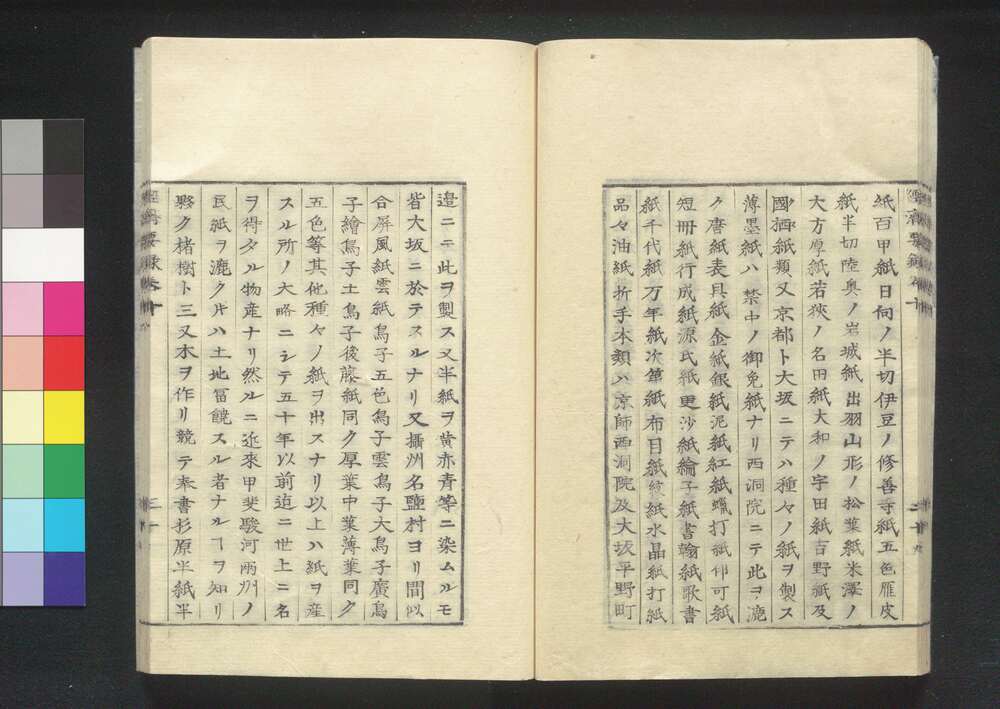 紙百甲紙日向ノ半切伊豆ノ修善寺紙五色雁皮
紙半切陸奥ノ岩城紙出羽山形ノ松葉紙米澤ノ
大方厚紙若狹ノ名田紙大和ノ宇田紙吉野紙及
國栖紙類又京都ト大坂ニテハ種々ノ紙ヲ製ス
薄墨紙ハ禁中ノ御免紙ナリ西洞院ニテ此ヲ漉
ク唐紙表具紙金紙銀紙泥紙紅紙蠟打紙仰可紙
短冊紙行成紙源氏紙更沙紙綸子紙書翰紙歌書
紙千代紙万年紙次第紙布目紙紋紙水晶紙打紙
品々油紙折手本類ハ京師西洞院及大坂平野町
邉ニテ此ヲ製ス又半紙ヲ黄赤青等ニ染ムルモ
皆大坂ニ於テスルナリ又攝州名鹽村ヨリ間似
合屏風紙雲紙鳥子五色鳥子雲鳥子大鳥子廣鳥
子繪鳥子土鳥子後藤紙同ク厚葉中葉薄葉同ク
五色等其他種々ノ紙ヲ出スナリ以上ハ紙ヲ産
スル所ノ大略ニシテ五十年以前迠ニ世上ニ名
ヲ得タル物産ナリ然ルニ近來甲斐駿河兩州ノ
民紙ヲ漉ク片ハ土地冨饒スル者ナルヿヲ知リ
夥ク楮樹ト三又木ヲ作リ競テ奉書杉原半紙半